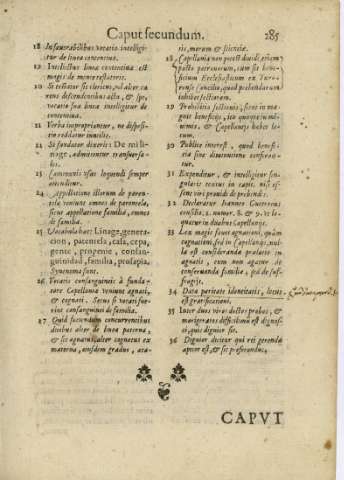 Caput secundum. 285
18 In fauorabilibus vocatio intelligi-
tur de linea contentiua.
19 Intellectus linea contentiua est
magis de mente testatoris.
20 Si testator sit clericus, vel alter ca
rens descendentibus actu, & spe,
vocatio sua linea intelligitur de
contentiua.
21 Verba improprientur, ne dispositi-
tio reddatur inutilis.
22 Si fundator dixerit: De mi li-
nage, admittentur transuersa-
les.
23 Communis vsus loquendi semper
attenditur.
24 Appellatione illorum de paren-
tela veniunt omnes de parentela,
sicut appellatione familia, omnes
de familia.
25 Vocabula hæc: Linage, genera-
cion, parentela, casa, cepa,
gente, progenie, consan-
guinidad, familia, prosapia,
Synonoma sunt.
26 Vocatis consanguineis à funda-
tore Capellania veniunt agnati,
& cognati. Secus si vocati fue-
rint consanguinei de familia.
27 Quid secundum concurrentibus
duobus alter de linea paterna,
& sic agnatus: alter cognatus ex
materna, eiusdem gradus, ata-
tis, morum & scientiæ.
28 Capellania non potest diuidi, etiam
pacto patronorum, cum sit bene-
ficium Ecclesiasticum ex Turo-
nense Concilio, quod prebendarum
inhibet sectionem.
29 Prohibitio sectionis, sicut in ma-
gnis beneficijs, ita quoque in mi-
nimis, & Capellanijs habet lo-
cum.
30 Publice interest, quod benefi-
cia sine diminutione conferan-
tur.
31 Expenditur, & intelligitur sin-
gularis textus in cap.
32 Declaratur Ioannes Gutierrez
consil. 2. numer. 8. & 9. & lo-
quatur in duabus Capellanijs.
33 Lex magis fauet agnationi, quàm
cognationi, sed in Capellanijs, nul-
la est consideranda prælatio in
agnatis, cum non agatur de
conseruanda familia; sed de suf-
fragijs.
34 Data paritate idoneitatis, locus
est gratificationi.
35 Inter duos viros doctos probos, &
morigeratos difficillimum est dignosci
, quis dignior sit.
36 Dignior dicitur qui rei gerenda
aptior est, & sic præferendus.
CAPVT